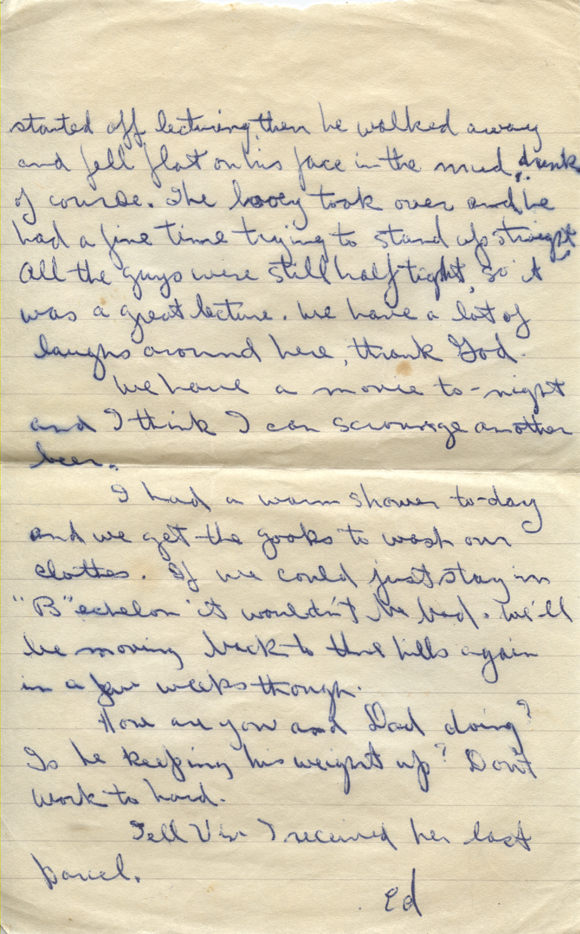 started off lecturing, then he walked away
and fell flat on his face in the mud, drunk
of course. The looey took over and he
had a fine time trying to stand up straight.
All the guys were still half tight, so it
was a great lecture. We have a lot of
laughs around here, thank God.
We have a movie to-night
and I think I can scrounge another
beer.
I had a warm shower to-day
and we get the gooks to wash our
clothes. If we could just stay in
"B" echelon it wouldn't be bad. We'll
be moving back to the hills again
in a few weeks though.
How are you and Dad doing?
Is he keeping his weight up? Don't
work to hard.
Tell Viv I received her last
parcel.
Ed